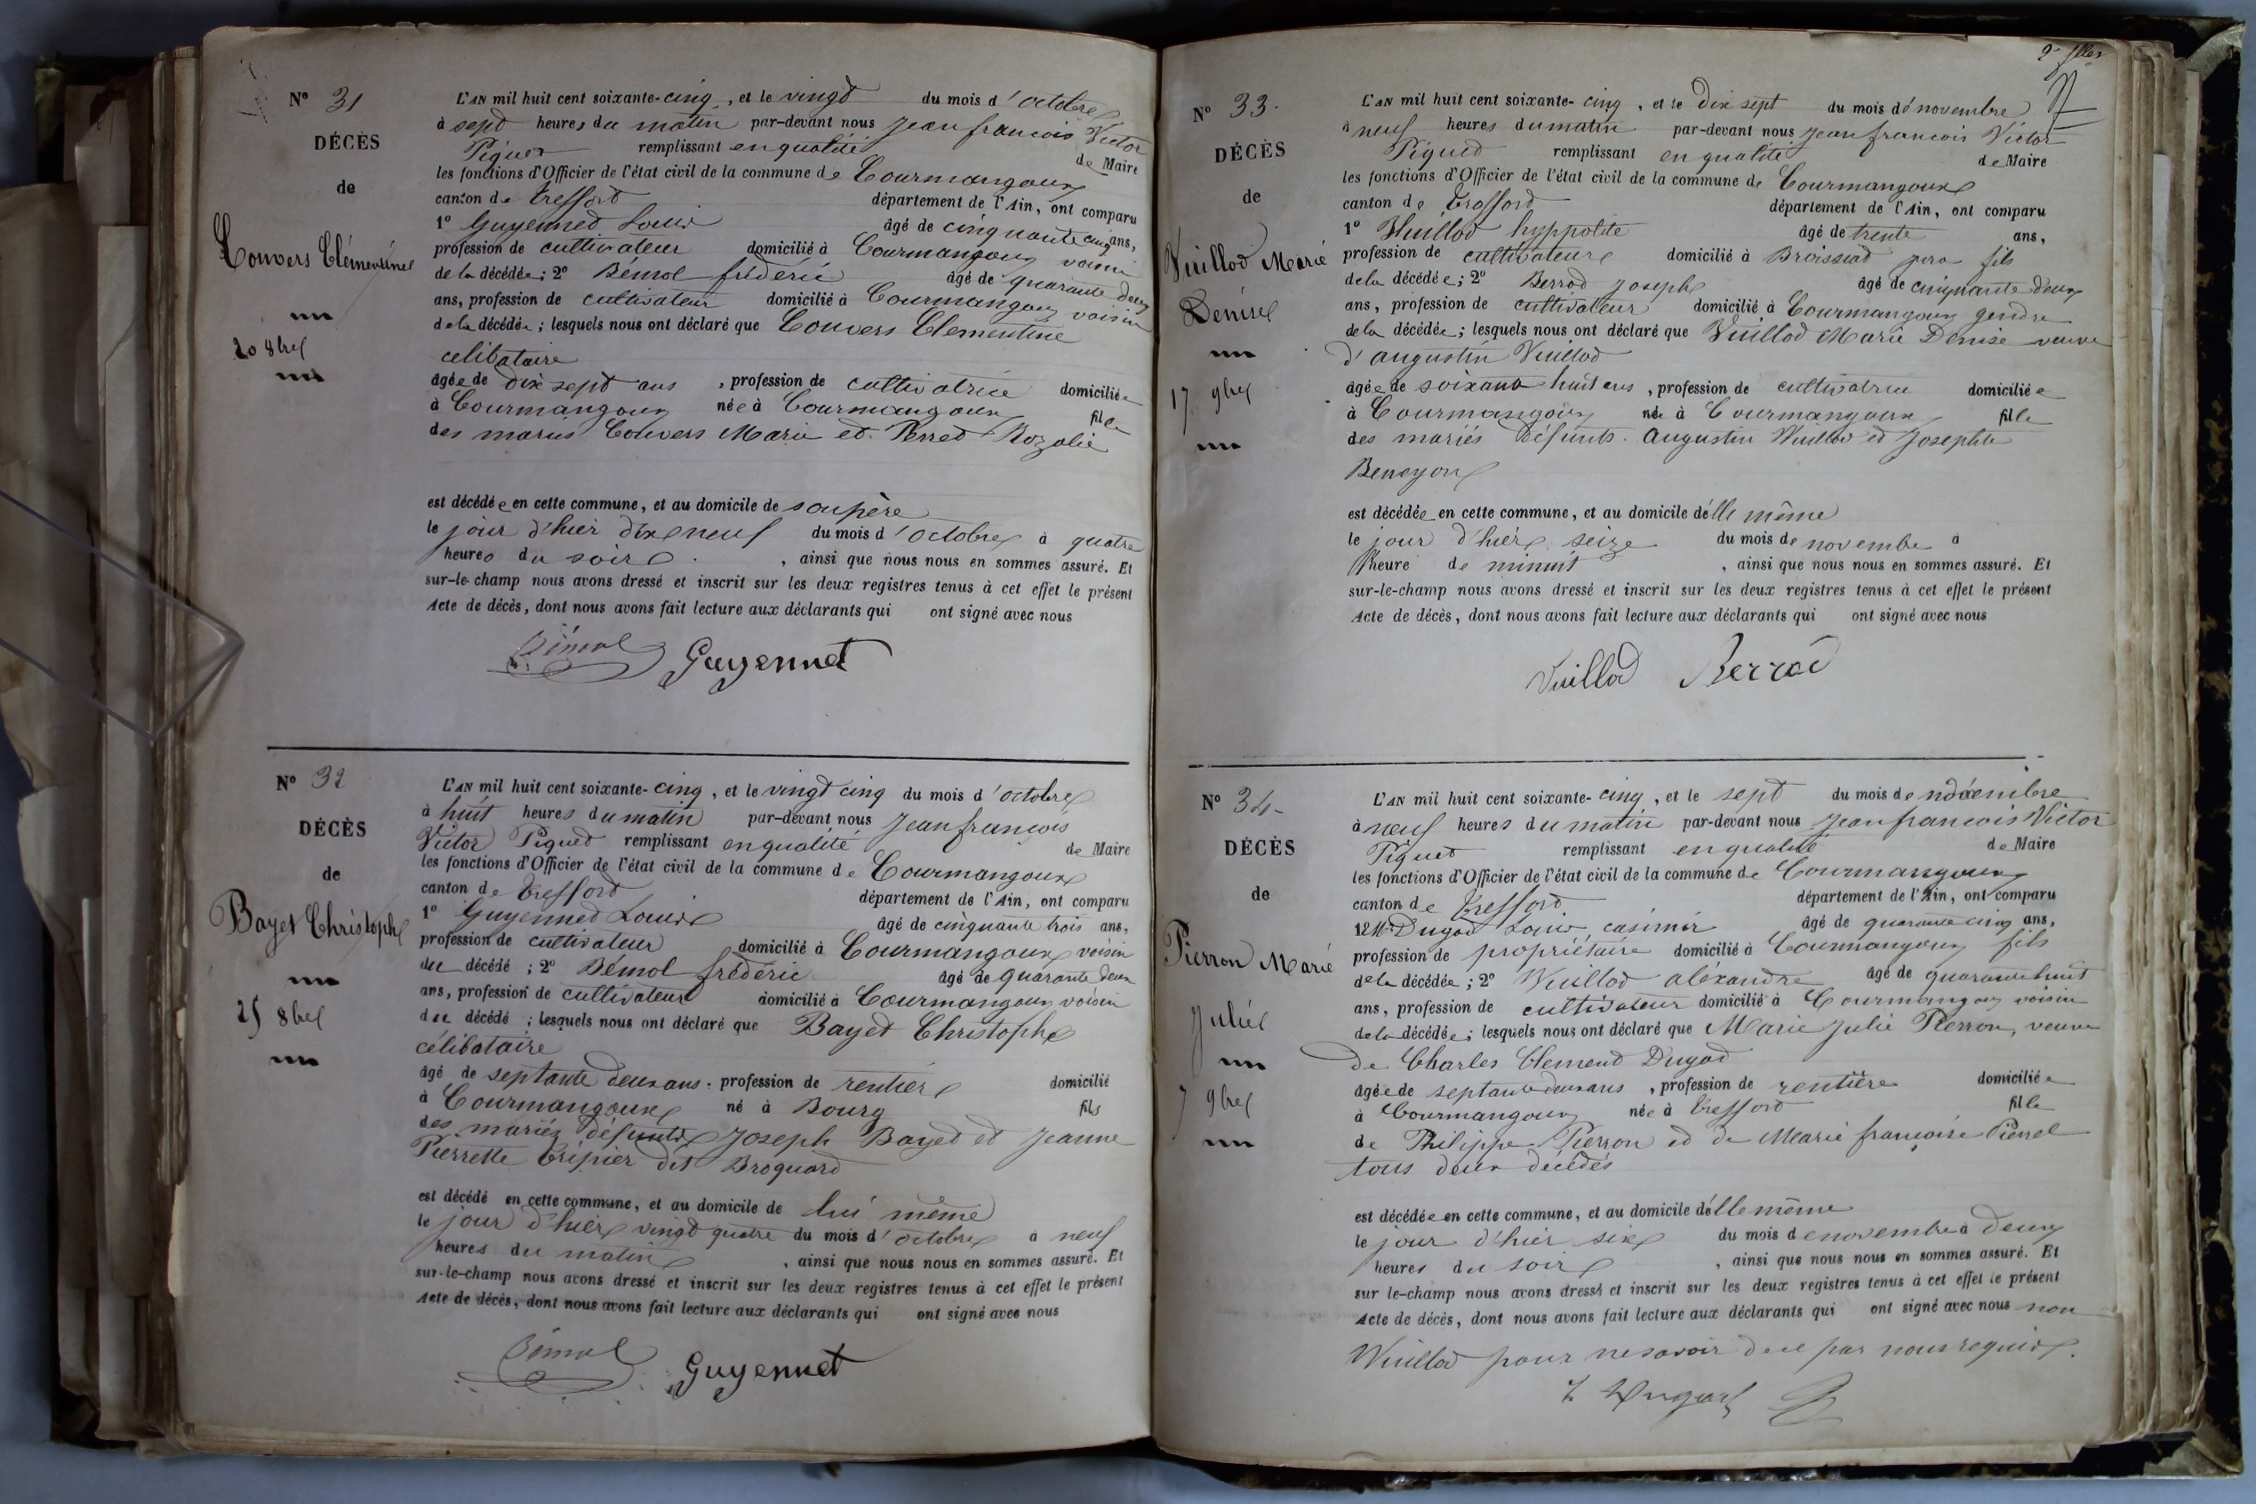 Nº 31
DÉCÈS
de
Convers Clémentine
20 8bre
L'AN mil huit cent soixante-cinq, et le vingt du mois d'octobre
à sept heures du matin par-devant nous Jean francois Victor
Piquet remplissant en qualité de Maire
les fonctions d'Officier de l'état civil de la commune de Courmangoux
canton de Treffort département de l'Ain, ont comparu
1º Guyennet Louis âgé de cinquante cinq ans,
profession de cultivateur domicilié à Courmangoux voisin
de la décédée; 2º Bémol frédéric âgé de quarante deux
ans, profession de cultivateur domicilié à Courmangoux voisin
de la décédée; lesquels nous ont déclaré que Convers Clementine
celibataire
âgée de dix sept ans, profession de cultivatrice domiciliée
à Courmangoux née à Courmangoux fille
des mariés Convers Marie et Perret Rozalie
est décédée en cette commune, et au domicile de son père
le jour d'hier dix neuf du mois d'octobre à quatre
heures du soir, ainsi que nous nous en sommes assuré. Et
sur-le-champ nous avons dressé et inscrit sur les deux registres tenus à cet effet le présent
Acte de décès, dont nous avons fait lecture aux déclarants qui ont signé avec nous
Bémol Guyennet
Nº 32
DÉCÈS
de
Bayet Christophe
25 8bre
L'AN mil huit cent soixante-cinq, et le vingt cinq du mois d'octobre
à huit heures du matin par-devant nous Jean francois
Victor Piquet remplissant en qualité de Maire
les fonctions d'Officier de l'état civil de la commune de Courmangoux
canton de Treffort département de l'Ain, ont comparu
1º Guyennet Louis âgé de cinquante trois ans,
profession de cultivateur domicilié à Courmangoux voisin
du décédé; 2º Bémol frédéric âgé de quarante deux
ans, profession de cultivateur domicilié à Courmangoux voisin
du décédé; lesquels nous ont déclaré que Bayet Christophe
célibataire
âgé de septante deux ans, profession de rentier domicilié
à Courmangoux né à Bourg fils
des mariés défunts Joseph Bayet et Jeanne
Pierrette Tripier dit Broquard
est décédé en cette commune, et au domicile de lui même
le jour d'hier vingt quatre du mois d'octobre à neuf
heures du matin, ainsi que nous nous en sommes assuré. Et
sur-le-champ nous avons dressé et inscrit sur les deux registres tenus à cet effet le présent
Acte de décès, dont nous avons fait lecture aux déclarants qui ont signé avec nous
Bémol Guyennet
Nº 33
DÉCÈS
de
Vuillod Marie
Denise
17 9bre
L'AN mil huit cent soixante-cinq, et le dix sept du mois de novembre
à neuf heures du matin par-devant nous Jean francois Victor
Piquet remplissant en qualité de Maire
les fonctions d'Officier de l'état civil de la commune de Courmangoux
canton de Treffort département de l'Ain, ont comparu
1º Vuillod hyppolite âgé de trente ans,
profession de cultivateur domicilié à Broissiat fils
de la décédée; 2º Berrod Joseph âgé de cinquante deux
ans, profession de cultivateur domicilié à Courmangoux gendre
de la décédée; lesquels nous ont déclaré que Vuillod Marie Denise veuve
d'augustin Vuillod
âgée de soixante huit ans, profession de cultivatrice domiciliée
à Courmangoux née à Courmangoux fille
des mariés défunts Augustin Vuillod et Josephte
est décédée en cette commune, et au domicile d'elle même
le jour d'hier seize du mois de novembre à
l'heure de minuit, ainsi que nous nous en sommes assuré. Et
sur-le-champ nous avons dressé et inscrit sur les deux registres tenus à cet effet le présent
Acte de décès, dont nous avons fait lecture aux déclarants qui ont signé avec nous
Vuillod Berrod
Nº 34
DÉCÈS
de
Pierron Marie
Julie
7 9bre
L'AN mil huit cent soixante-cinq, et le sept du mois de novembre
à neuf heures du matin par-devant nous Jean francois Victor
Piquet remplissant en qualité de Maire
les fonctions d'Officier de l'état civil de la commune de Courmangoux
canton de Treffort département de l'Ain, ont comparu
1º Mr Dugad Louis casimir âgé de quarante cinq ans,
profession de propriétaire domicilié à Courmangoux fils
de la décédée; 2º Vuillod aléxandre âgé de quarante huit
ans, profession de cultivateur domicilié à Courmangoux voisin
de la décédée; lesquels nous ont déclaré que Marie Julie Pierron, veuve
de Charles Clement Dugad
âgée de septante deux ans, profession de rentière domiciliée
à Courmangoux née à Treffort fille
de Philippe Pierron et de Marie françoise
tous deux décédés
est décédée en cette commune, et au domicile d'elle même
le jour d'hier six du mois de novembre à deux
heures du soir, ainsi que nous nous en sommes assuré. Et
sur le-champ nous avons dressé et inscrit sur les deux registres tenus à cet effet le présent
Acte de décès, dont nous avons fait lecture aux déclarants qui ont signé avec nous non
Vuillod pour ne savoir de ce par nous requis.